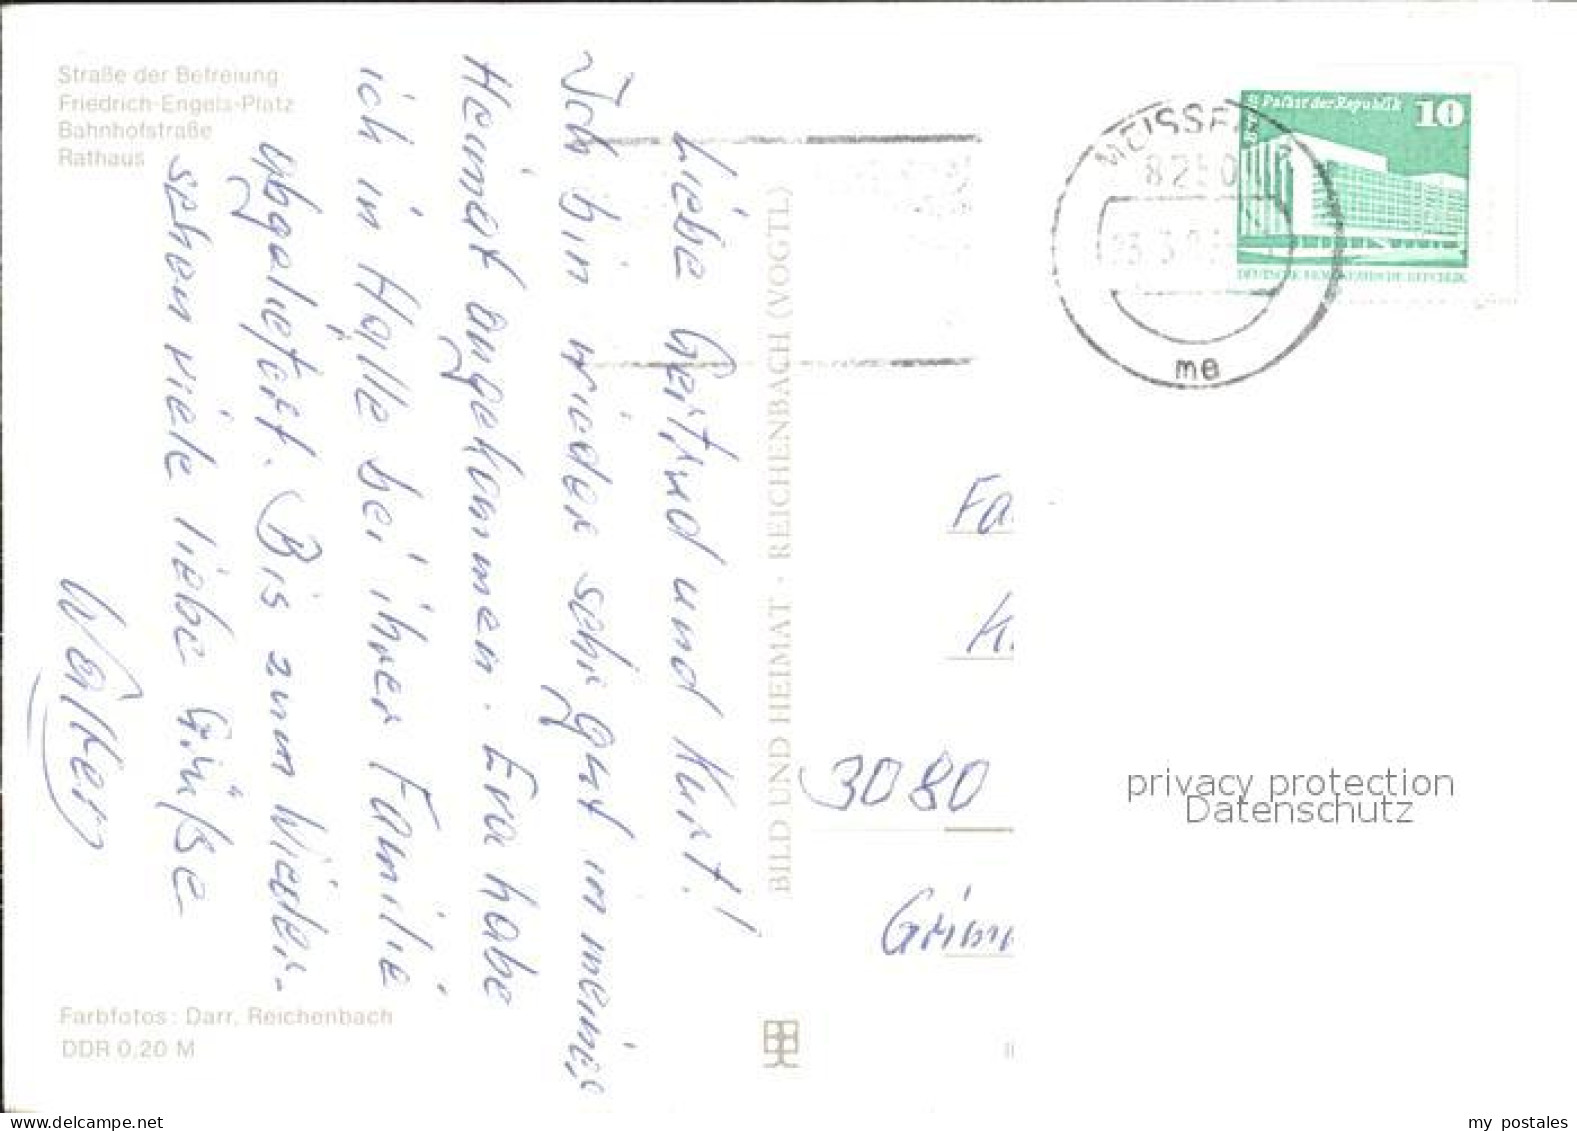 Straße der Befreiung
Friedrich-Engels-Platz
Bahnhofstraße
Rathaus
Liebe Gertrud und Kurt!
Ich bin wieder sehr gut in meiner
Heimat angekommen. Eva habe
ich in Halle bei ihrer Familie
abgeliefert. Bis zum Wieder-
sehen viele liebe Grüße
Walter
Farbfotos: Darr, Reichenbach
DDR 0,20 M
BILD UND HEIMAT · REICHENBACH (VOGTL)
Palast der Republik 10
DEUTSCHE DEMOKRATISCHE REPUBLIK
me
Fa
K
3080
Grimm
privacy protection
Datenschutz
my postales